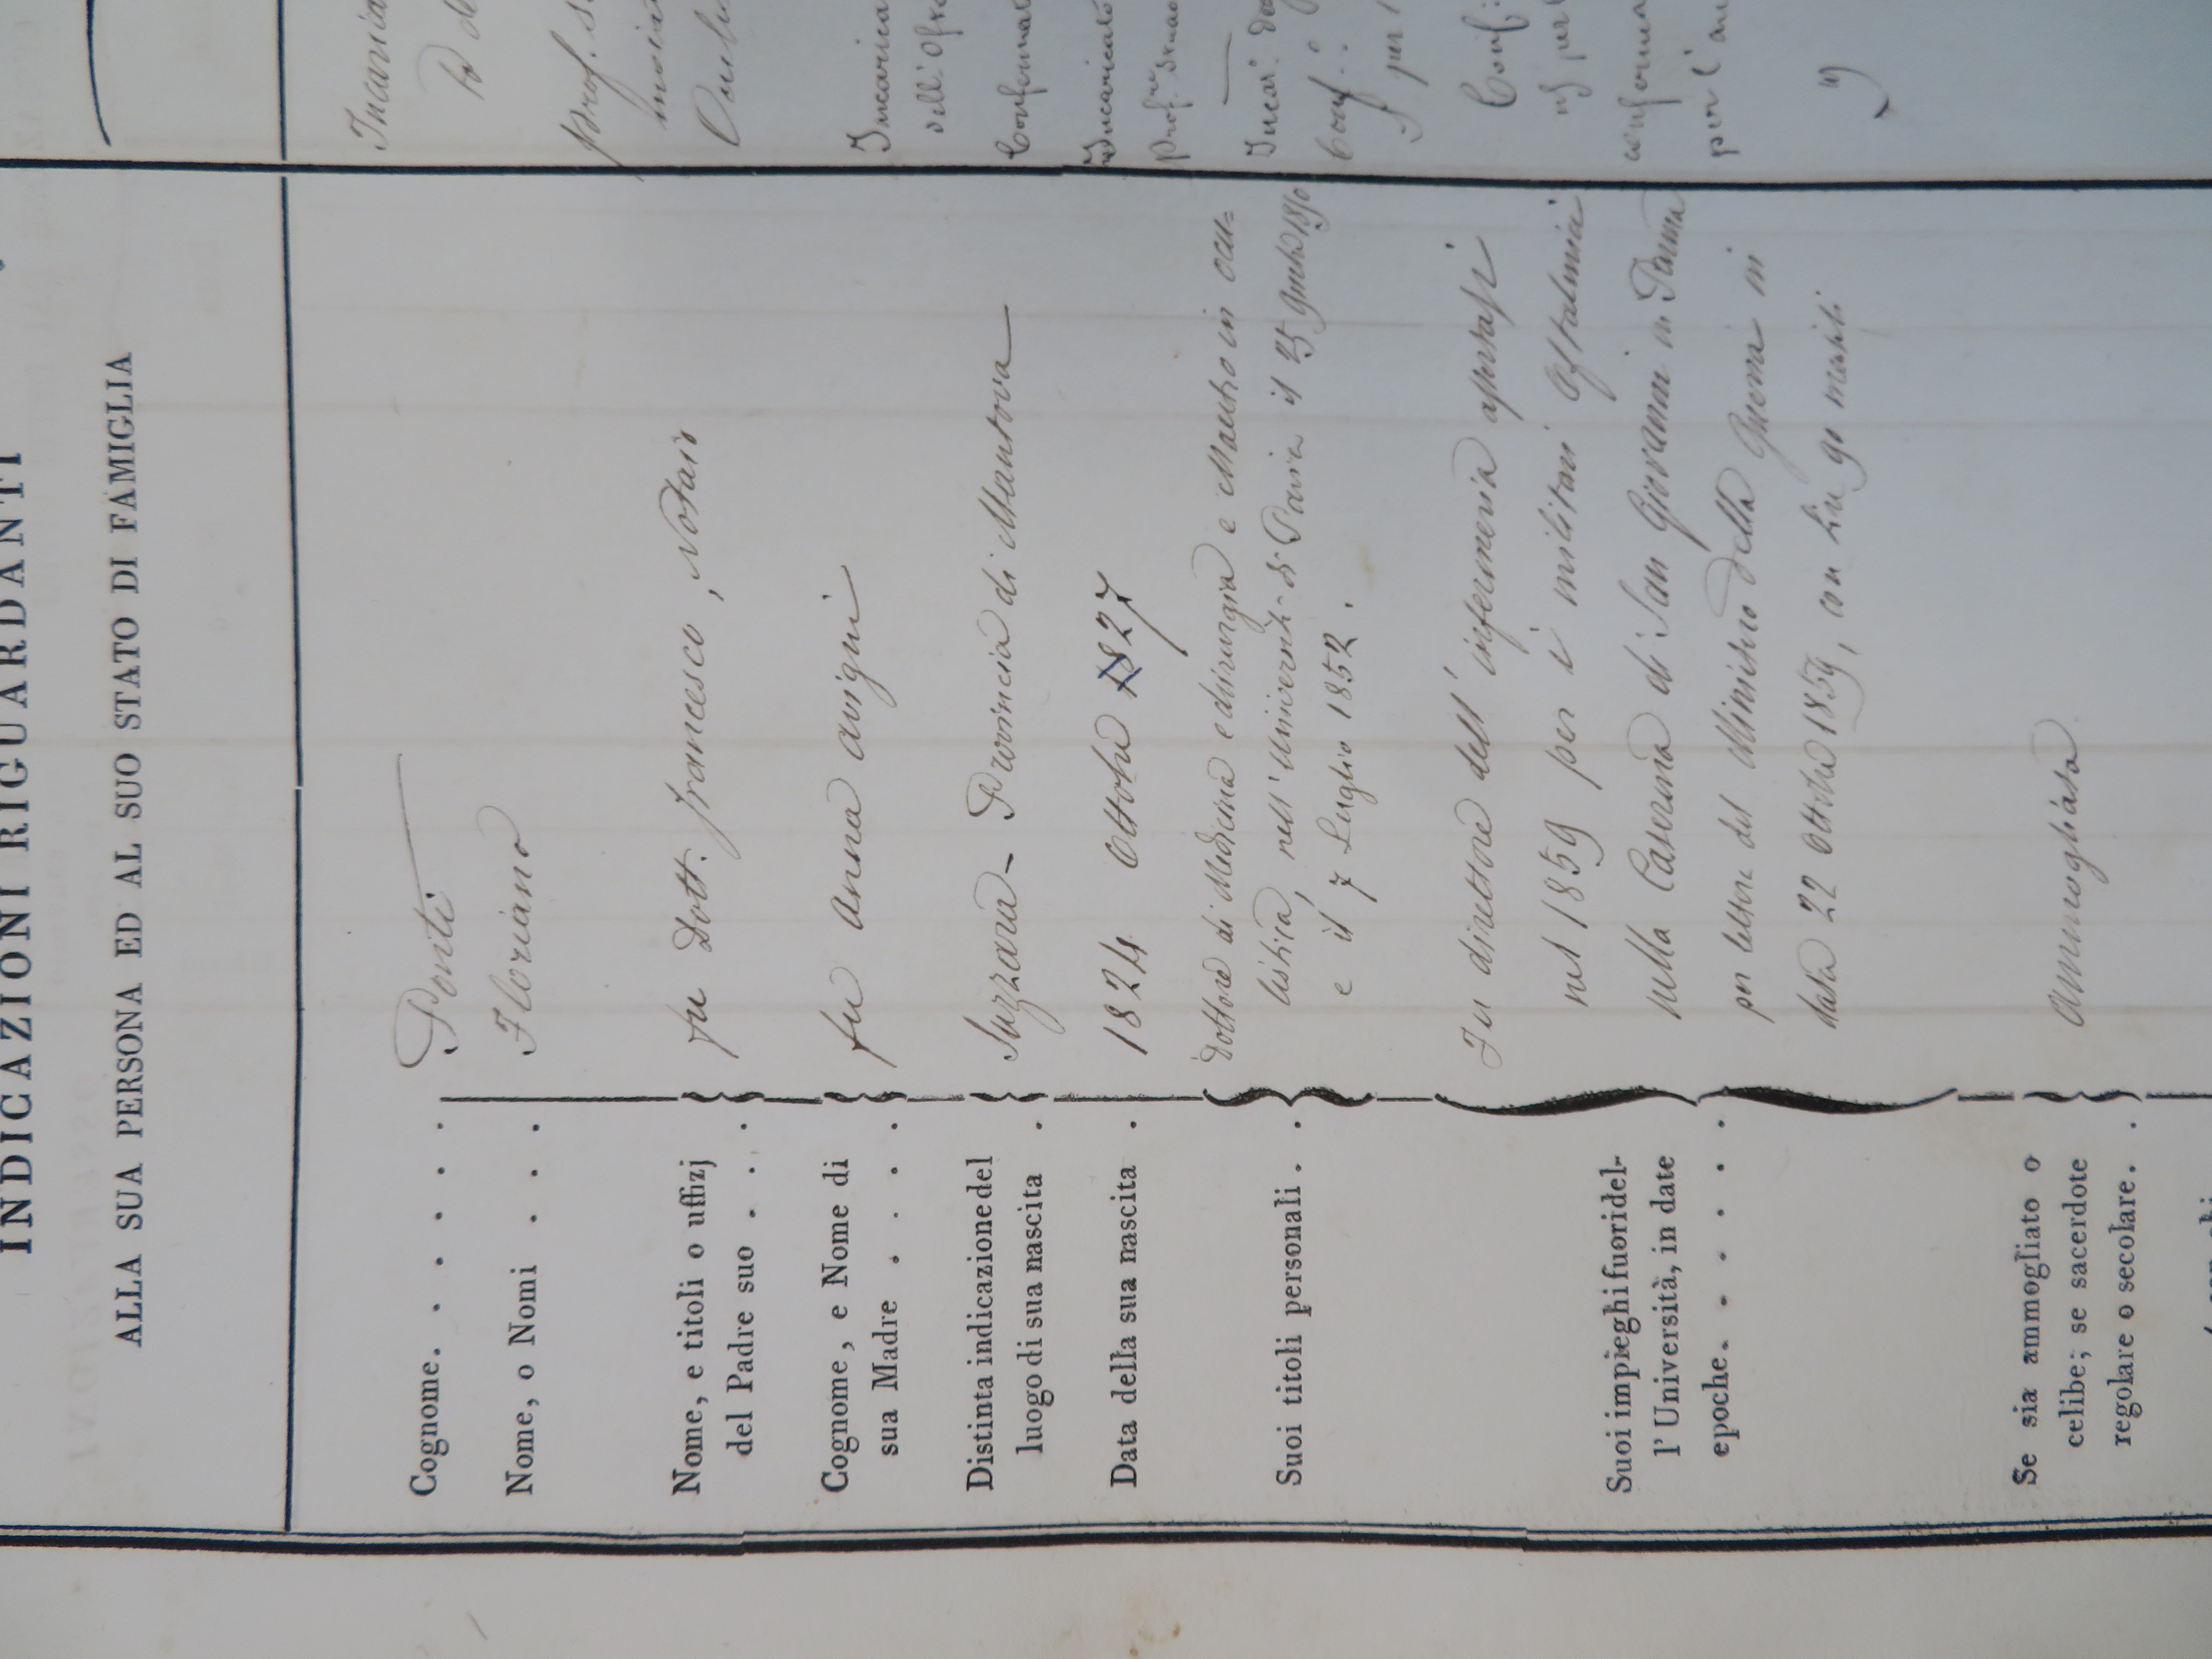 INDICAZIONI RIGUARDANTI
ALLA SUA PERSONA ED AL SUO STATO DI FAMIGLIA
Cognome. . . . . . Ponti
Nome, o Nomi . . . . Floriano
Nome, e titoli o uffizj
del Padre suo . . . fu Dott. Francesco, Notaio
Cognome, e Nome di
sua Madre . . . . fu Anna Avigni
Distinta indicazione del
luogo di sua nascita . Suzzara - Provincia di Mantova
Data della sua nascita . 1824 Ottobre 1827
Suoi titoli personali . .
Dottore di Medicina e chirurgia e Maestro in ocu=
listica, nell'Universit. di Pavia il 25 9mbre 1850
e il 7 Luglio 1852.
Suoi impieghi fuori del-
l'Università, in date
epoche. . . . . . .
Fu direttore dell'infermeria
nel 1859 per i militari oftalmici
nella Caserma di San Giovanni in Parma
per lettere del Ministro della Guerra in
data 22 Ottobre 1859, con
Se sia ammogliato o
celibe; se sacerdote
regolare o secolare. .
Ammogliato
Incarica
Prof. s
Incarica
dell'Ofta
Confermat
Incaricato
Prof.
Incar.
Conf.
per
Conf.
conferma
per l'an